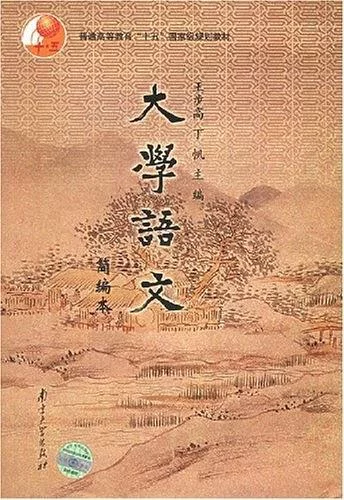 普通高等教育“十五”国家级规划教材
十·五
王步高 丁帆 主编
大學語文
简编本
南京大学出版社